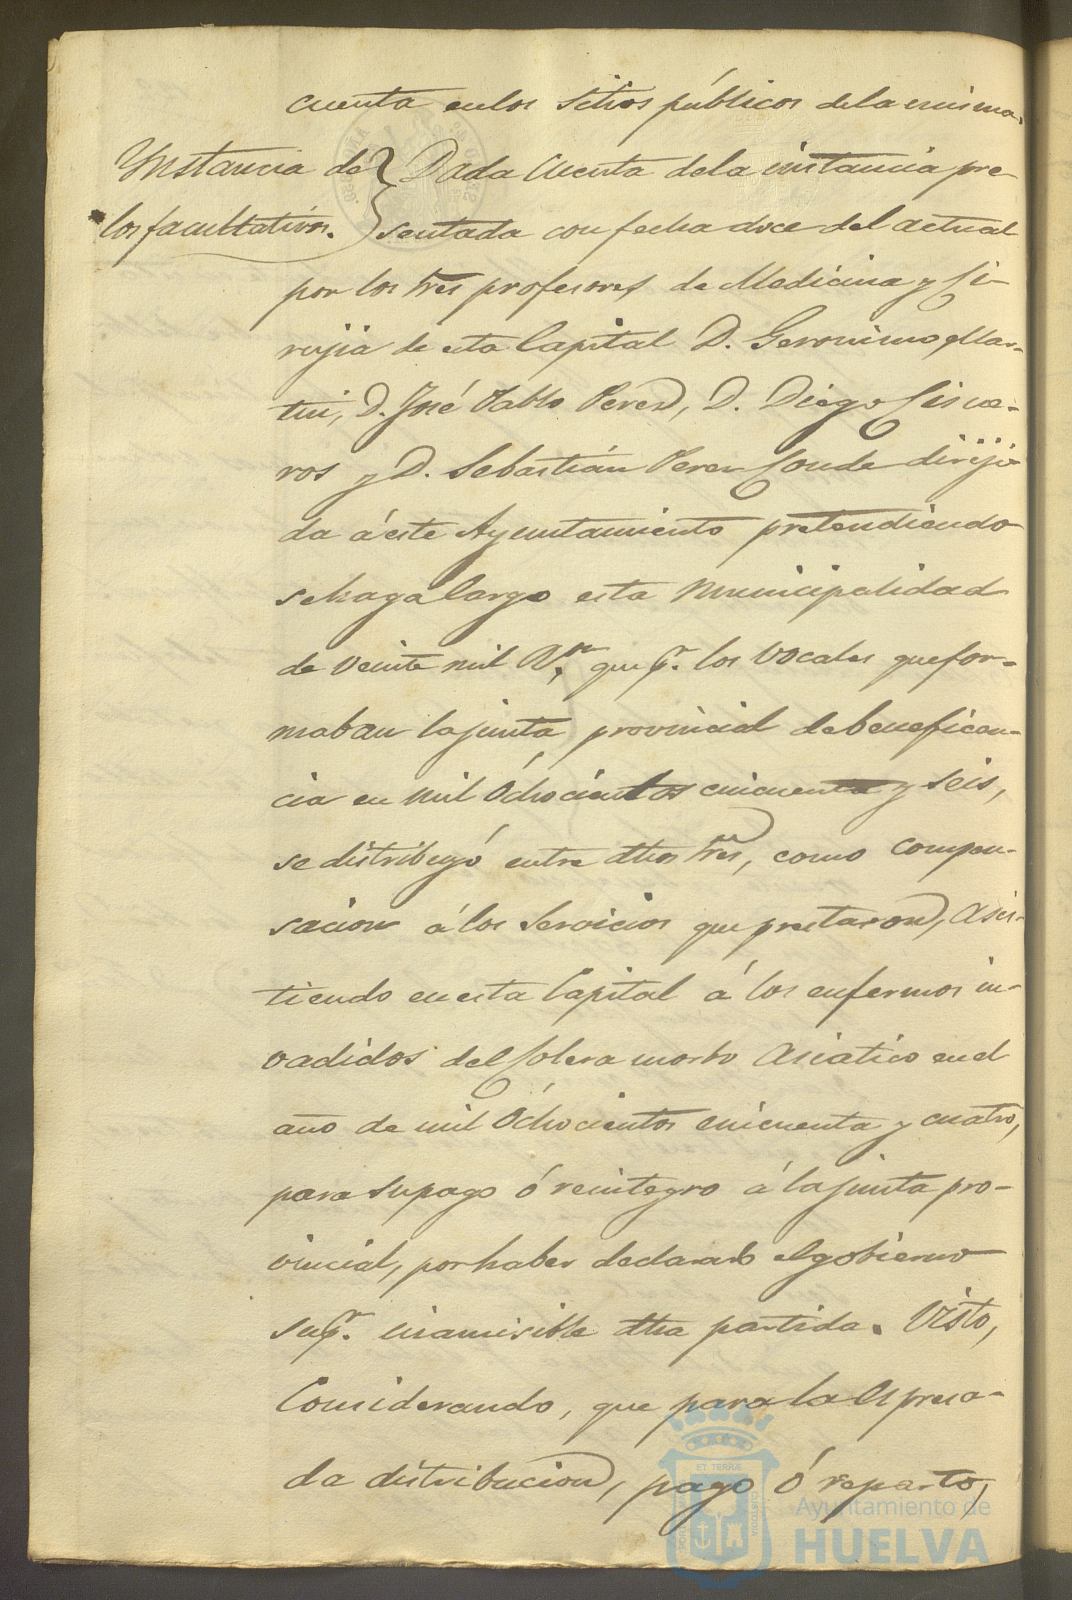 cuenta en los sitios públicos de la misma.
Ynstancia de los facultativos.
Dada Cuenta de la instancia pre-
sentada con fecha doce del actual
por los tres profesores de Medicina y Ci-
rujia de esta Capital D. Geronimo Mar-
tin, D. José Pablo Perez, D. Diego Cisne-
ros y D. Sebastián Perez Conde diriji-
da á este Ayuntamiento pretendiendo
se haga Cargo esta Municipalidad
de veinte mil Rs.n que pr. los vocales que for-
maban la junta provincial de beneficen-
cia en mil Ochocientos cincuenta y seis,
se distribuyó entre dhos tres, como compen-
sacion á los Servicios que prestaron, asis-
tiendo en esta Capital á los enfermos in-
vadidos del Colera morbo Asiatico en el
año de mil Ochocientos cincuenta y cuatro,
para su pago ó reintegro á la junta pro-
vincial, por haber declarado el gobierno
supr. inamisible dha partida. Visto,
Considerando, que para la espresa-
da distribucion, pago ó reparto,
Ayuntamiento de
HUELVA